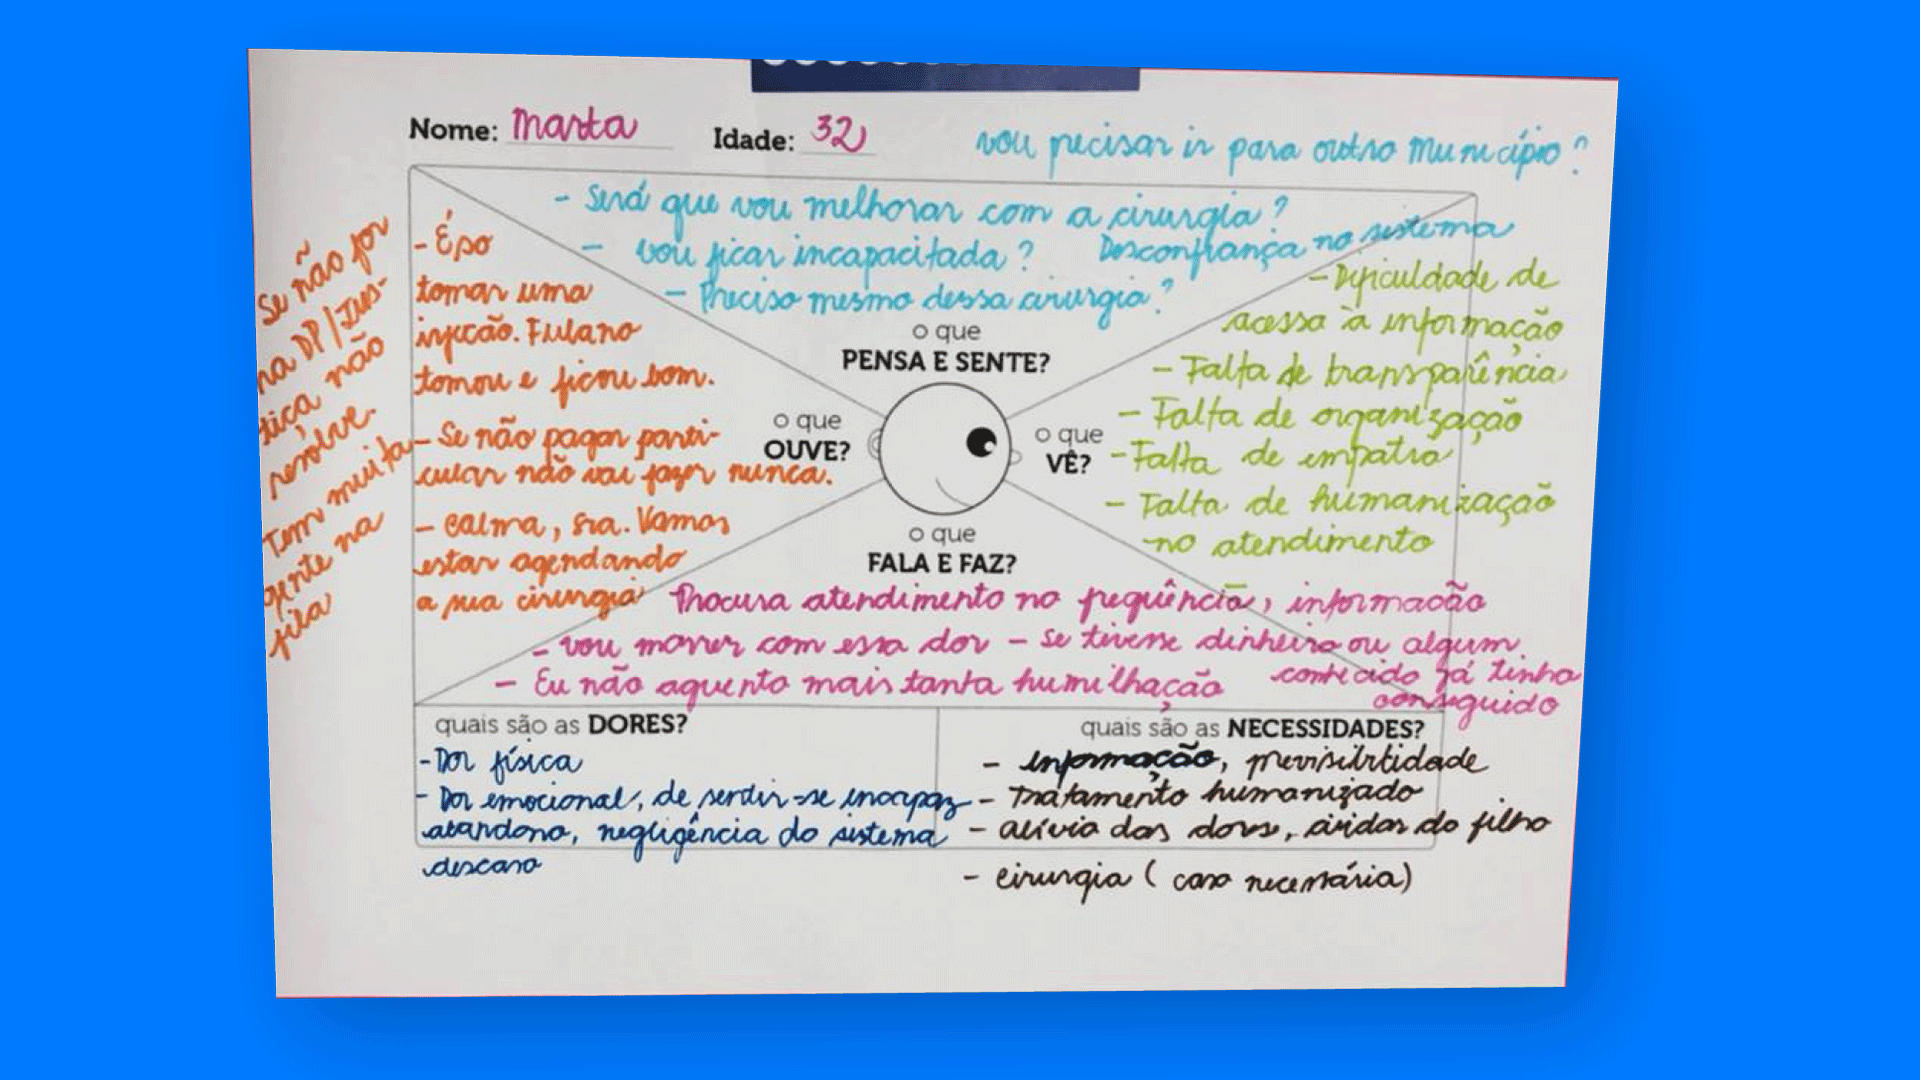 Nome: Marta Idade: 32
vou precisar ir para outro município?
- Será que vou melhorar com a cirurgia?
- vou ficar incapacitada?
Desconfiança no sistema
- Preciso mesmo dessa cirurgia?
o que
PENSA E SENTE?
Se não for
na DP/Jus-
tiça não
resolve.
Tem muita
gente na
fila
- É so
tomar uma
injecão. Fulano
tomou e ficou bom.
- Se não pagar parti-
cular não vai fazer nunca.
- Calma, sra. Vamos
estar agendando
a sua cirurgia
o que
OUVE?
o que
VÊ?
- Dificuldade de
acessa à informação
- Falta de transparência
- Falta de organização
- Falta de empatia
- Falta de humanização
no atendimento
o que
FALA E FAZ?
Procura atendimento no , informacão
- vou morrer com essa dor - Se tivesse dinheiro ou algum
conhecido já tinha
conseguido
- Eu não aguento mais tanta humilhação
quais são as DORES?
- Dor física
- Dor emocional, de sentir-se incapaz
abandono, negligência do sistema
descaso
quais são as NECESSIDADES?
- informação, previsibilidade
- Tratamento humanizado
- alívio das dores, cuidar do filho
- Cirurgia (caso necessária)